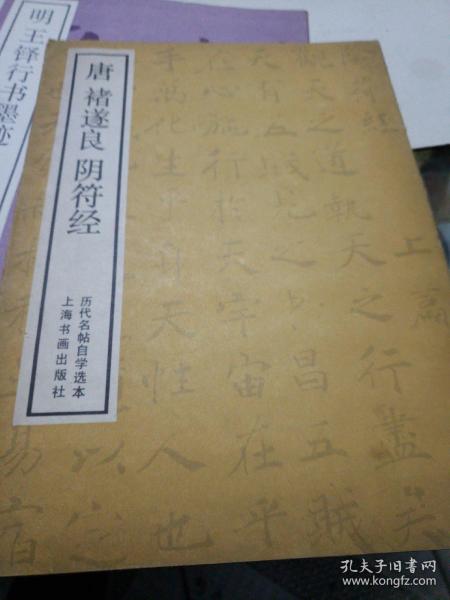 明王铎行书墨迹
唐 褚遂良 阴符经
历代名帖自学选本
上海书画出版社
陰符經上
觀天之道執天之行盡
天有五賊見之者昌五賊
在心施行於天宇宙在乎
手萬化生乎身天性人也
以定
易宿
孔夫子旧书网
www.kongfz.com